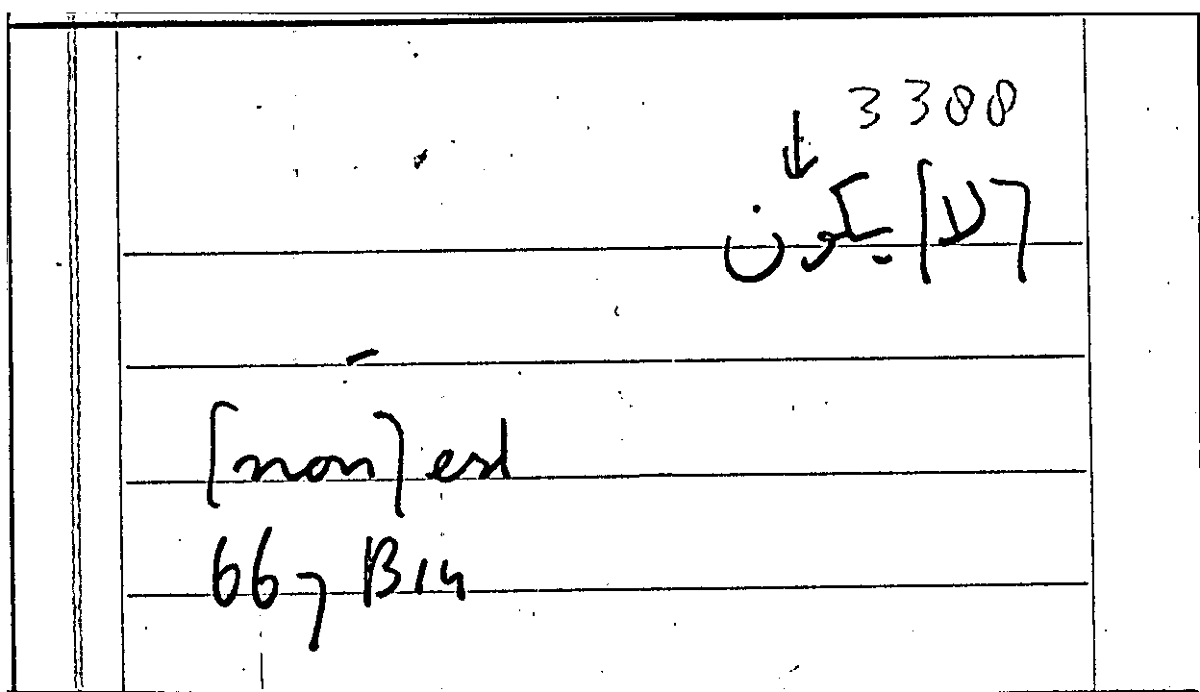 3388
↓
[لا] يكون
[non] est
667 B14